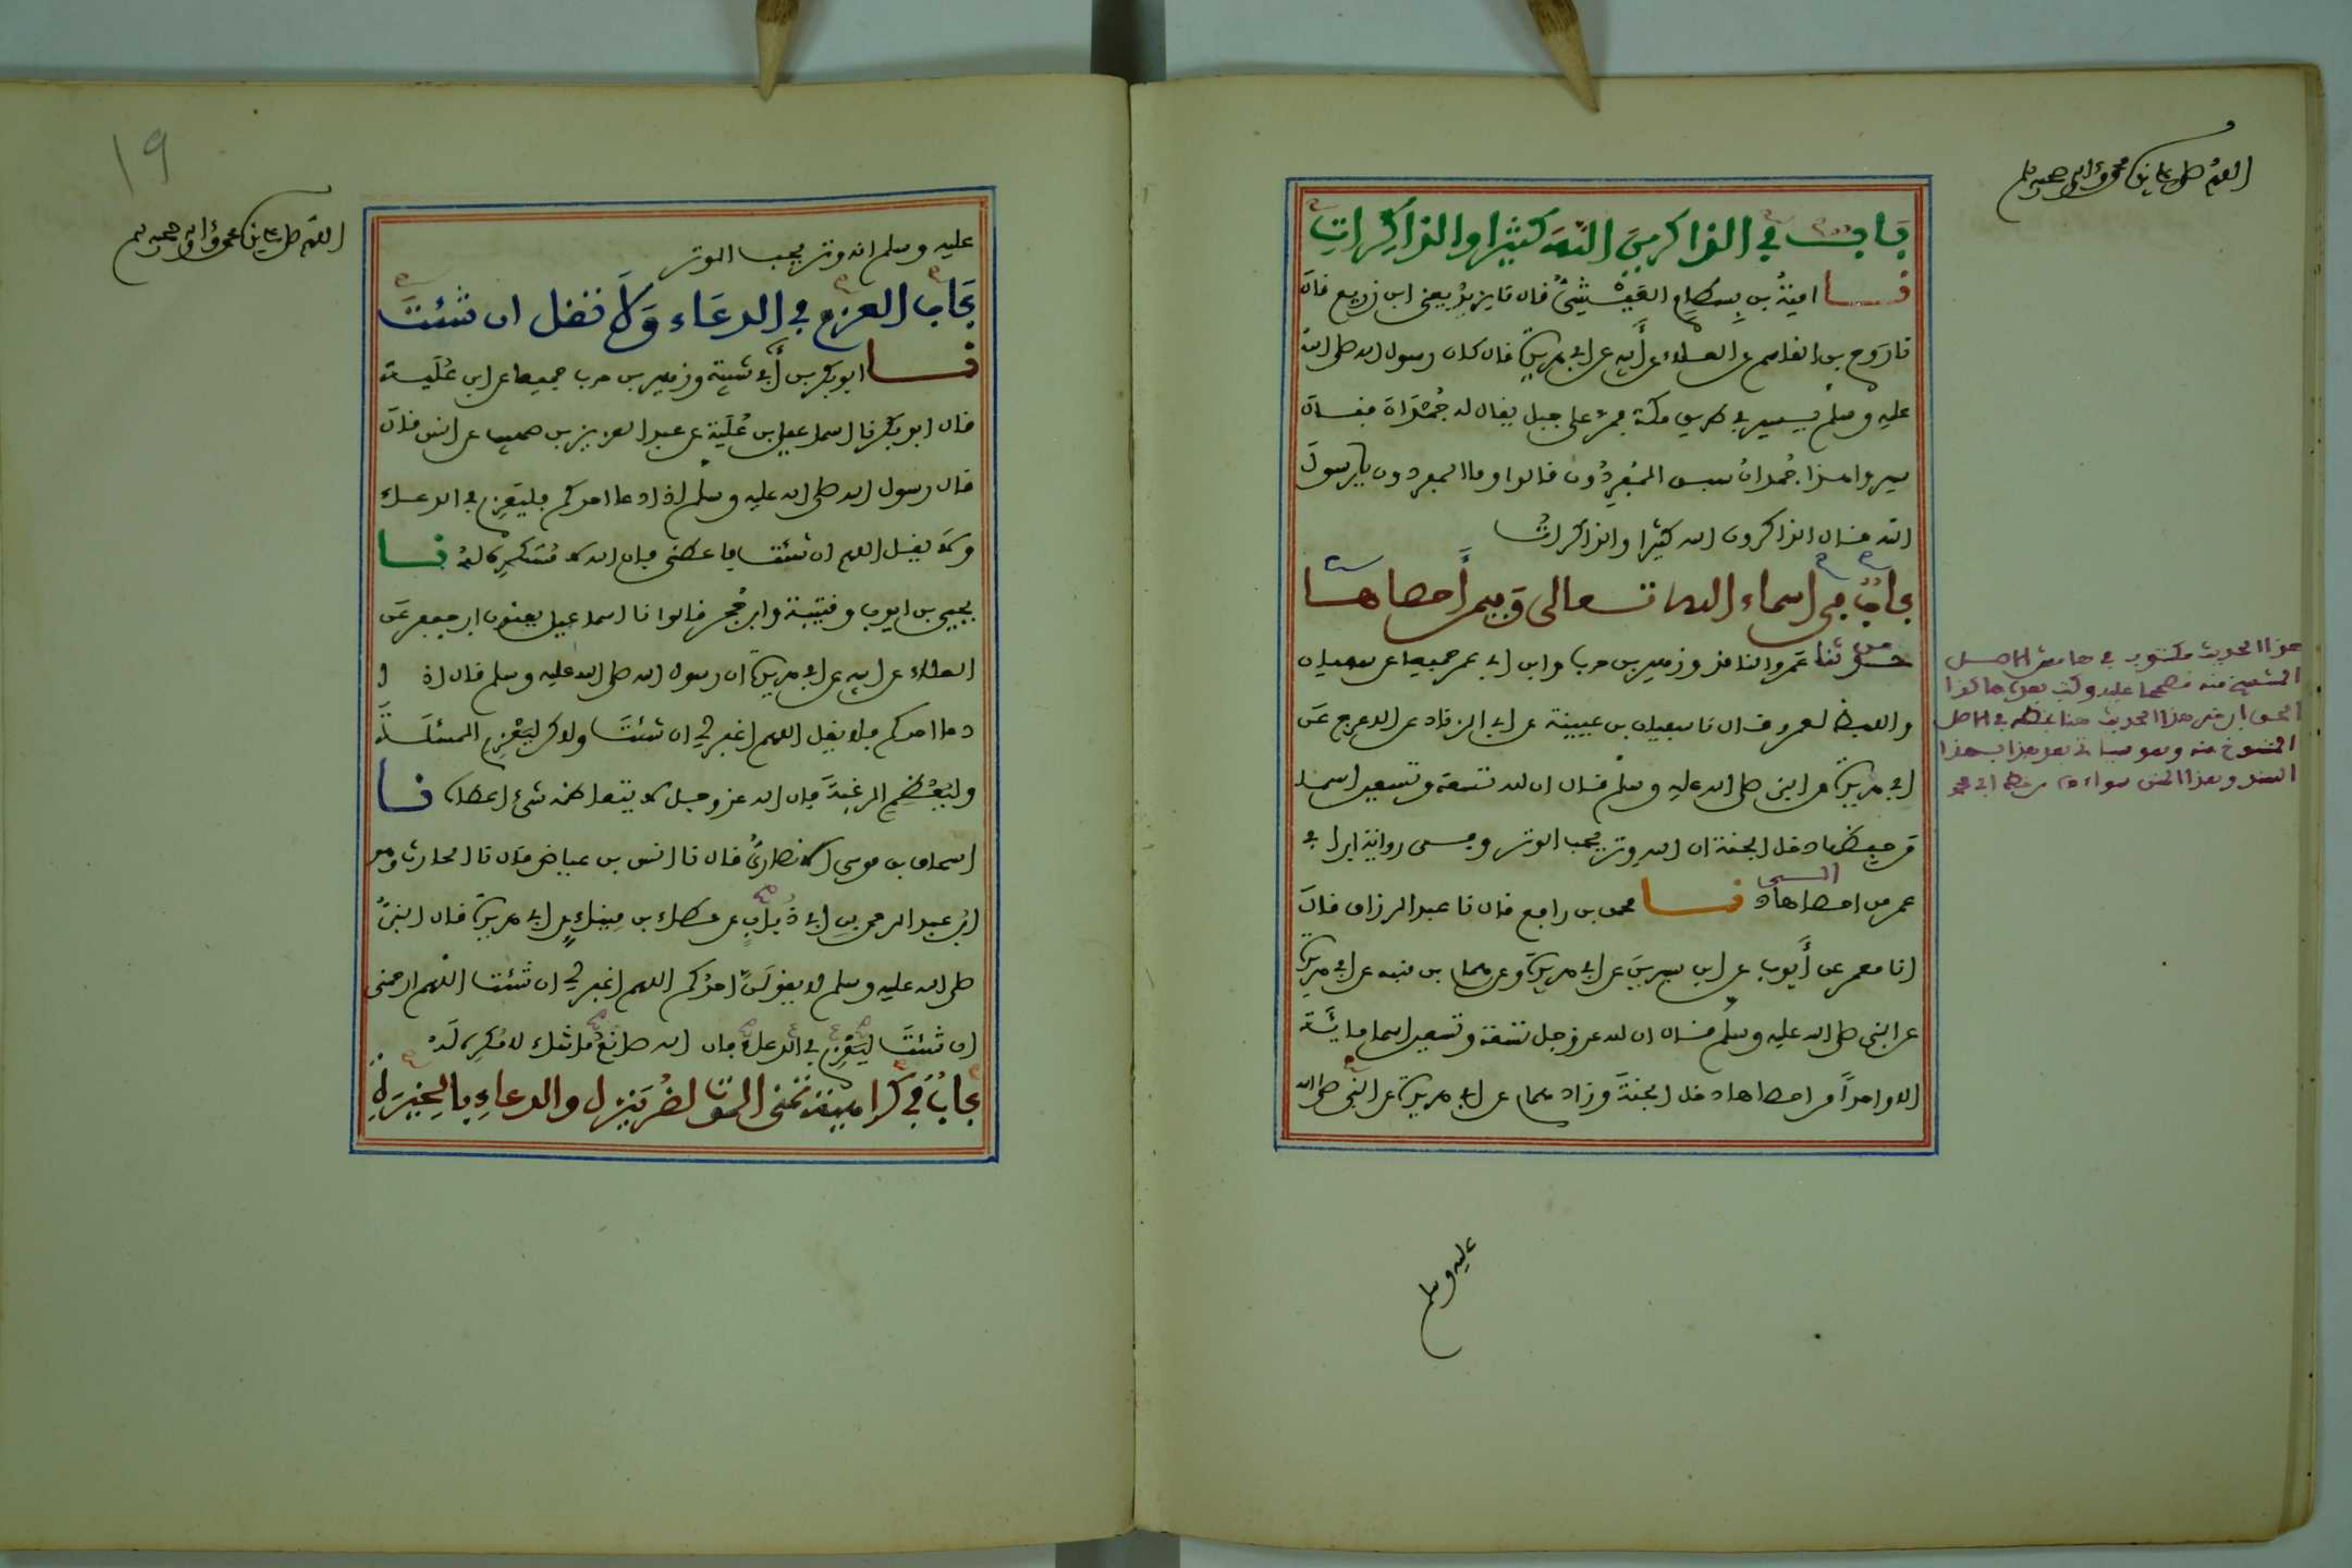 اللهم صل على سيدنا محمد وآله وصحبه وسلم
باب في الذاكرين الله كثيرا والذاكرات
نا امية بن بسطام العيشي قال نا يزيد يعني ابن زريع قال
نا روح بن القاسم عن العلاء عن أبيه عن ابي هريرة قال كان رسول الله صلى الله
عليه وسلم يسير في طريق مكة فمر على جبل يقال له جُمْدَان فقال
سيروا هذا جُمدانُ سبق المفردُون قالوا وما المفردون يا رسول
الله قال الذاكرون الله كثيرا والذاكراتُ
باب في اسماء الله تعالى وفيمن أحصاها
حدثنا عمرو الناقد وزهير بن حرب وابن ابي عمر جميعا عن سفيان
واللفظ لعمرو قال نا سفيان بن عيينة عن ابي الزناد عن الاعرج عن
ابي هريرة عن النبي صلى الله عليه وسلم قال ان لله تسعة وتسعين اسما
من حفظها دخل الجنة ان الله وتر يحب الوتر وفي رواية ابن ابي
عمر من احصاها نا محمد بن رافع قال نا عبد الرزاق قال
انا معمر عن أيوب عن ابن سيرين عن ابي هريرة وعن همام بن منبه عن ابي هريرة
عن النبي صلى الله عليه وسلم قال ان لله عز وجل تسعة وتسعين اسما مائة
الا واحداً من احصاها دخل الجنة وزاد همام عن ابي هريرة عن النبي صلى الله
هذا الحديث مكتوب في هامش الاصل
عليه وسلم
١٩
اللهم صل على سيدنا محمد وآله وصحبه وسلم
عليه وسلم انه وتر يحب الوتر
باب العزم في الدعاء ولا تقل ان شئت
نا ابو بكر بن أبي شيبة وزهير بن حرب جميعا عن ابن عُلَية
قال ابو بكر نا اسماعيل بن عُلَية عن عبد العزيز بن صهيب عن انس قال
قال رسول الله صلى الله عليه وسلم اذا دعا احدكم فليعزم في الدعاء
ولا يقل اللهم ان شئت فاعطني فان الله لا مُستكرِه لهُ نا
يحيى بن ايوب وقتيبة وابن حُجر قالوا نا اسماعيل يعنون ابن جعفر عن
العلاء عن ابيه عن ابي هريرة ان رسول الله صلى الله عليه وسلم قال اذ ا
دعا احدكم فلا يقل اللهم اغفر لي ان شئت ولاكن ليَعْزِم المسئلة
وليُعْظم الرغبة فان الله عز وجل لا يتعاظمه شيء اعطاه نا
اسحاق بن موسى الانصاريُّ قال نا انس بن عياض قال نا الحارث وهو
ابن عبد الرحمن بن ابي ذُبابٍ عن عطاء بن مينا عن ابي هريرة قال قال النبيُّ
صلى الله عليه وسلم لا يقولنَّ احدُكم اللهم اغفر لي ان شئت اللهم ارحمني
ان شئت ليَعْزِم في الدعاء فان الله صانعٌ ما شاء لا مُكرِه لَهُ
بابٌ في كراهية تمني الموت لضُرٍّ ينزل والدعاءِ بالخير لهُ